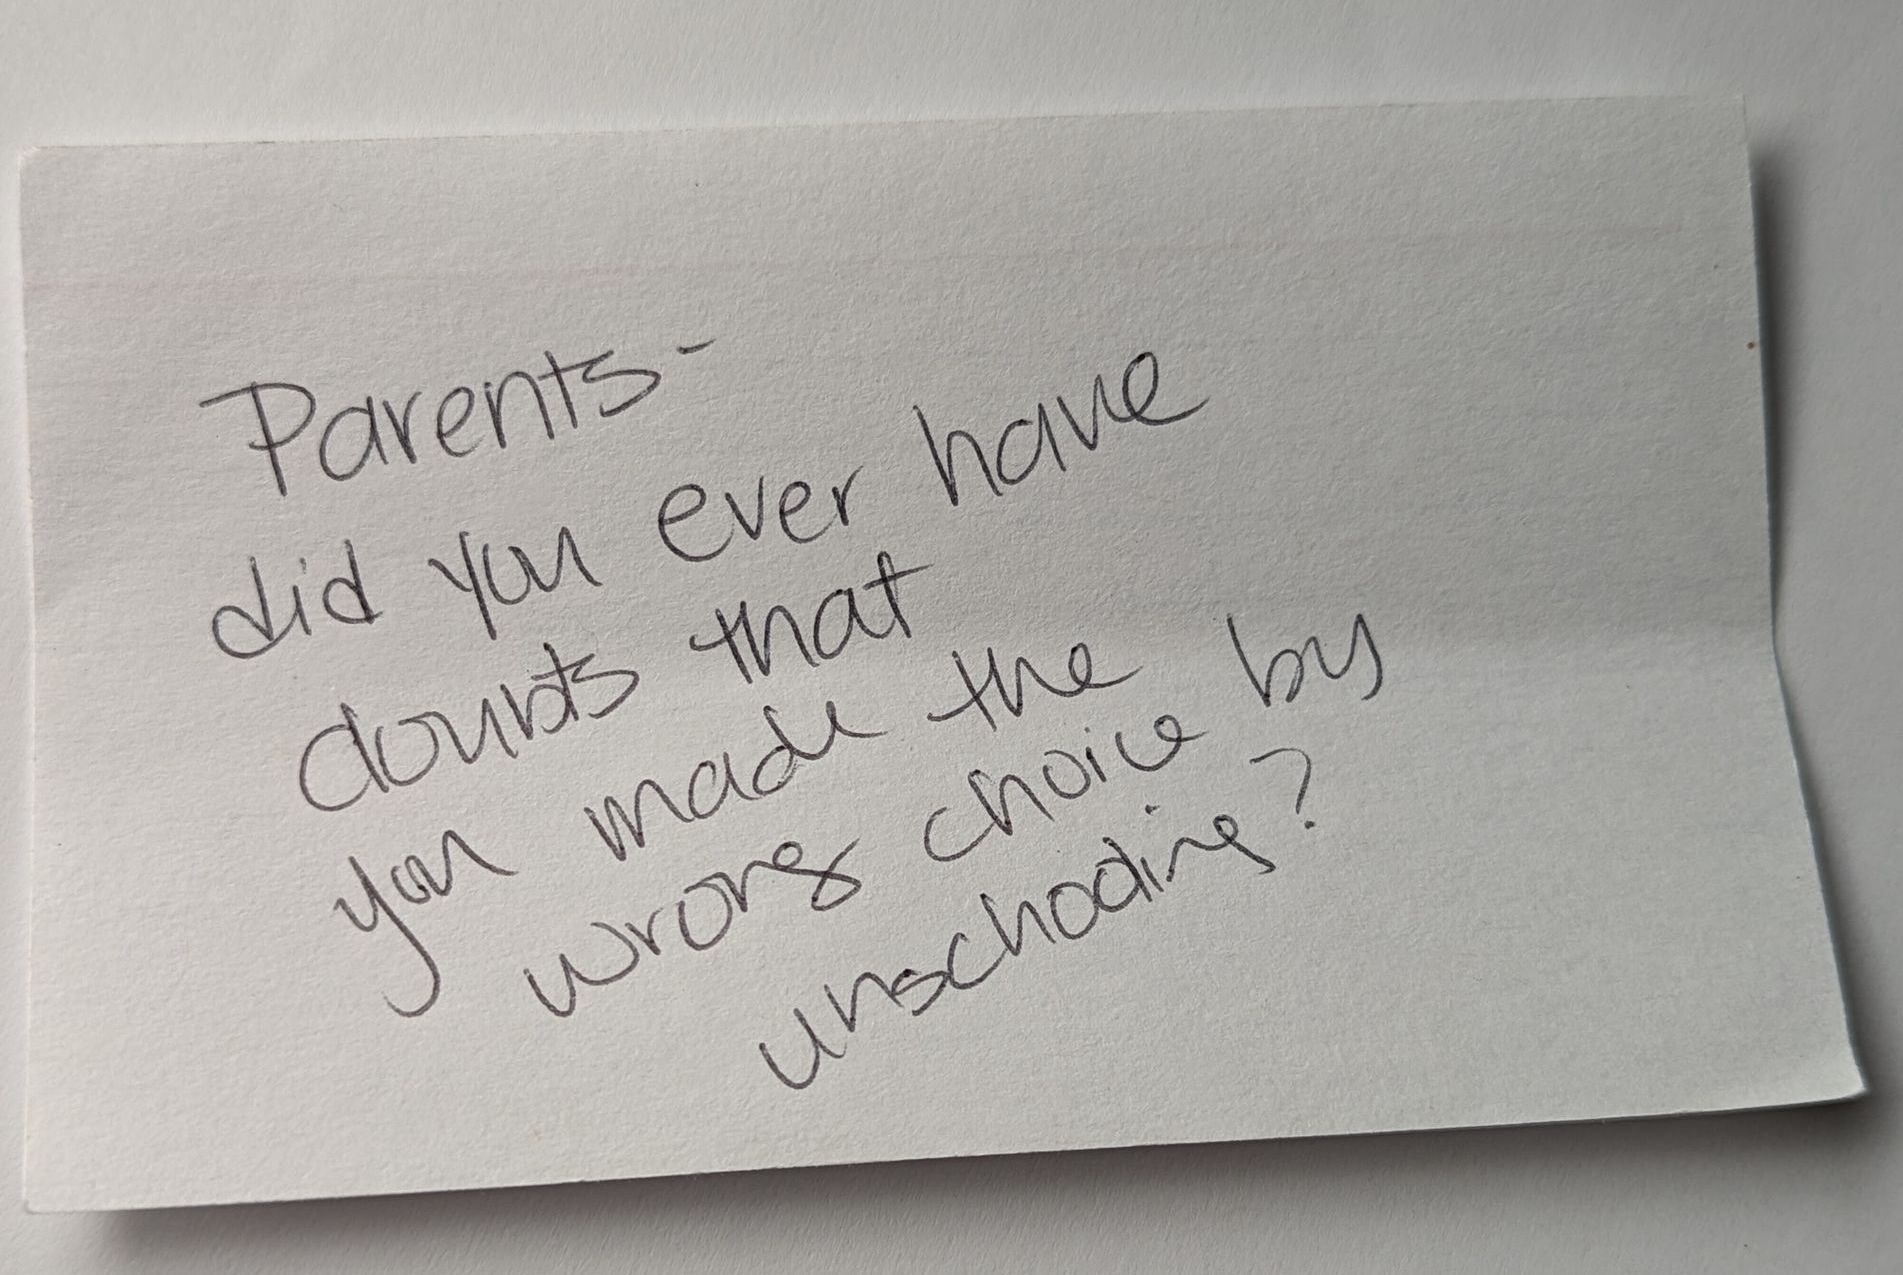 Parents-
did you ever have
doubts that
you made the
wrong choice by
unschooling?